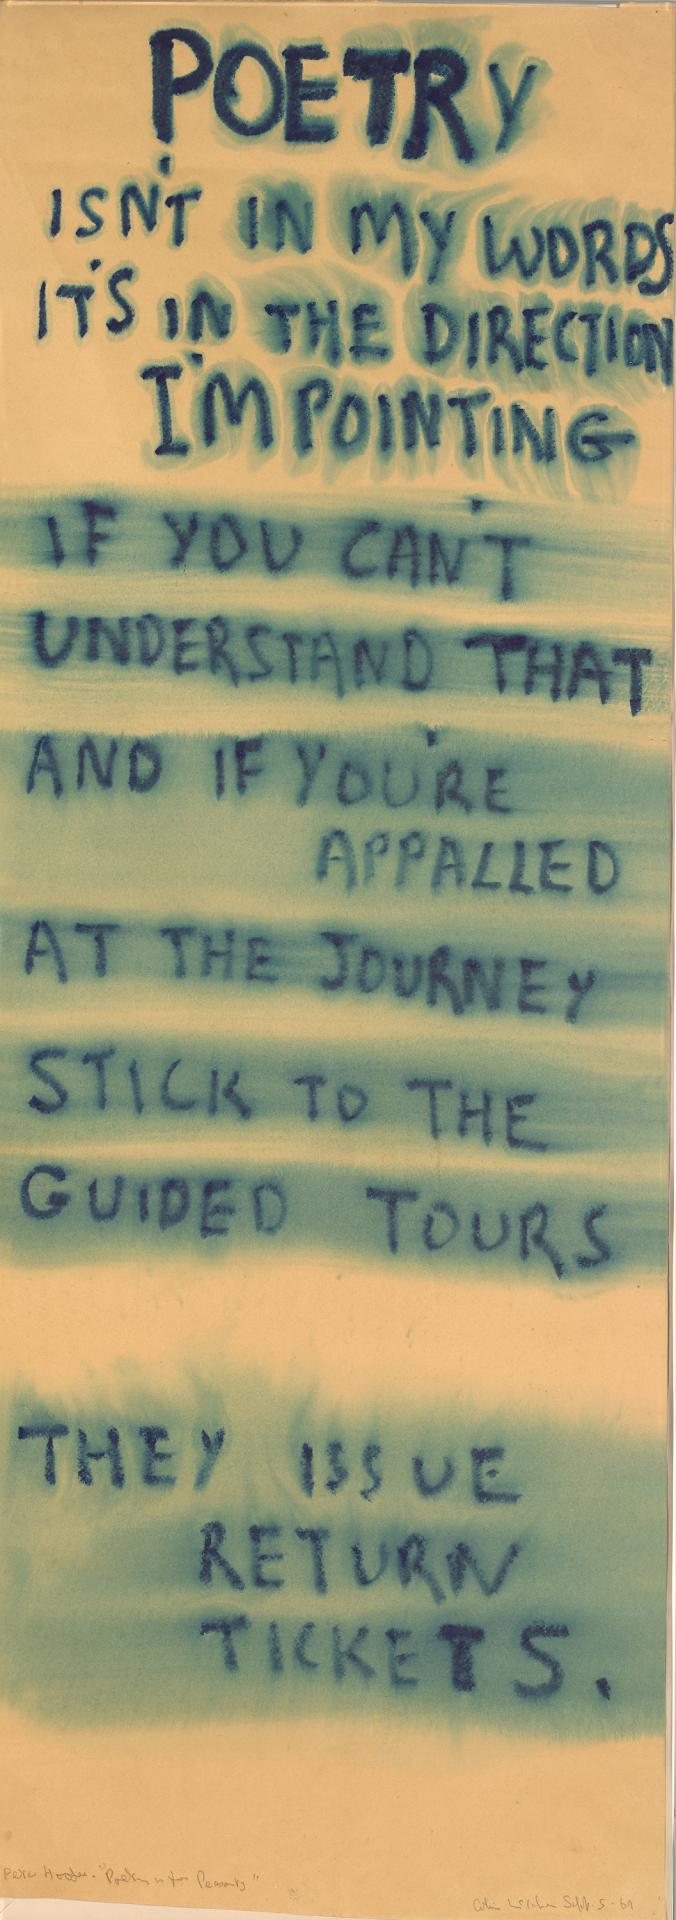 POETRY
ISN'T IN MY WORDS
IT'S IN THE DIRECTION
I'M POINTING
IF YOU CAN'T
UNDERSTAND THAT
AND IF YOU'RE
APPALLED
AT THE JOURNEY
STICK TO THE
GUIDED TOURS
THEY ISSUE
RETURN
TICKETS.
"Poetry is for Peasants"
Sept. 5 - 69